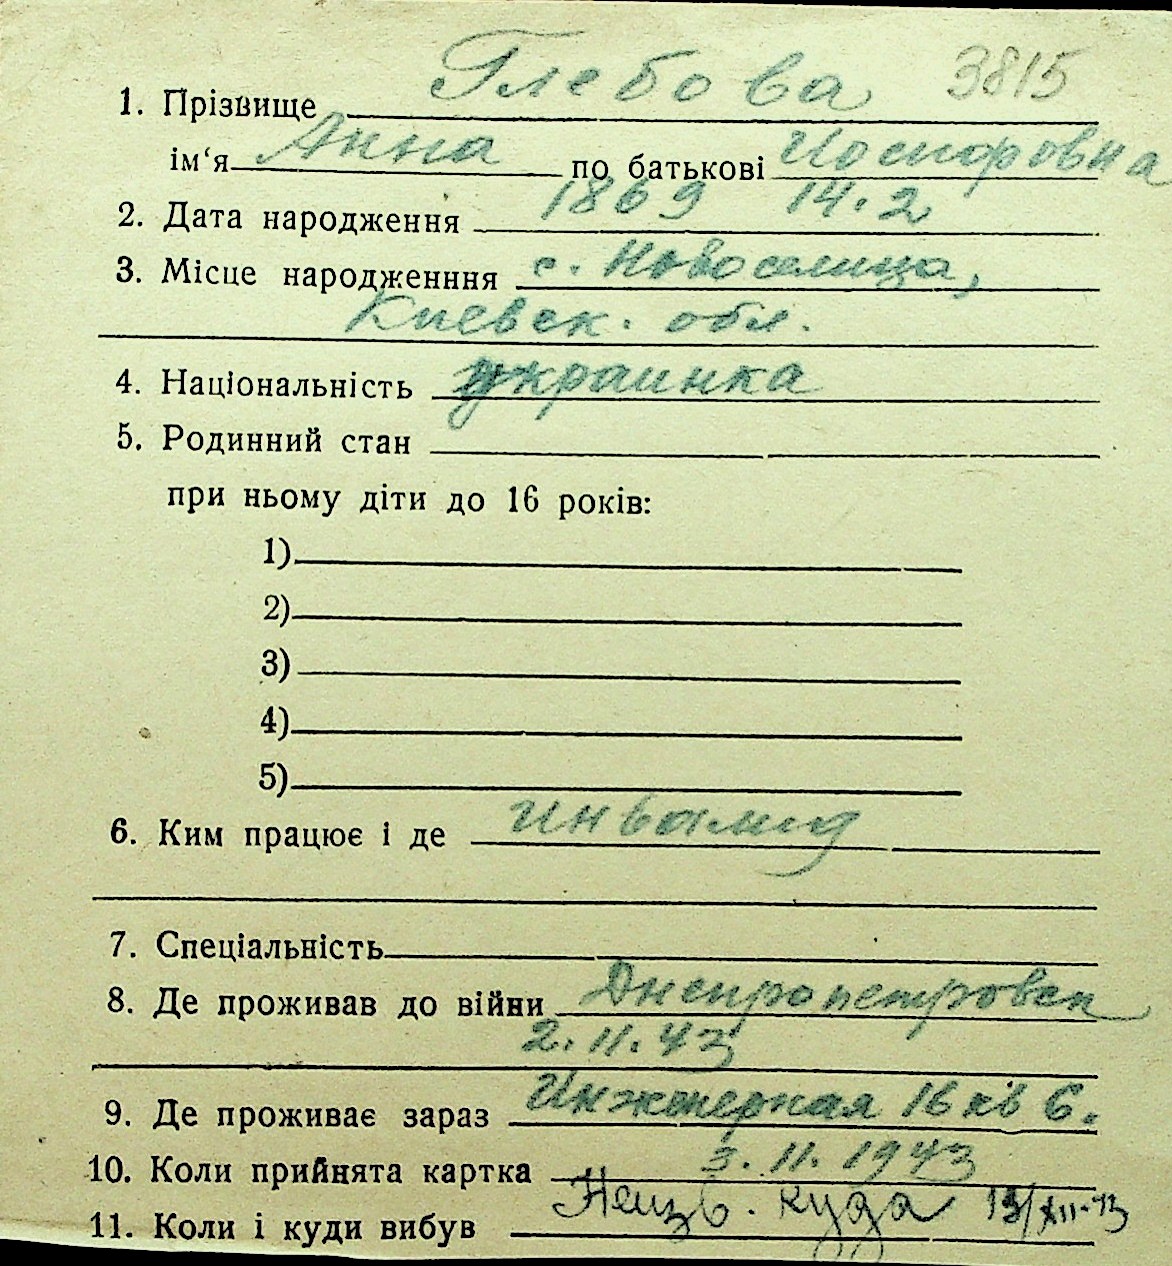 1. Прізвище Глебова 3815
ім‘я Анна по батькові Иосифовна
2. Дата народження 1869 14.2
3. Місце народженння с. Новоселица,
Киевск. обл.
4. Національність украинка
5. Родинний стан
при ньому діти до 16 років:
1)
2)
3)
4)
5)
6. Ким працює і де инвалид
7. Спеціальність
8. Де проживав до війни Днепропетровск
2.11.43
9. Де проживає зараз Инженерная 16 кв 6.
10. Коли прийнята картка 3.11.1943
11. Коли і куди вибув Неизв. куда 13/XII-43